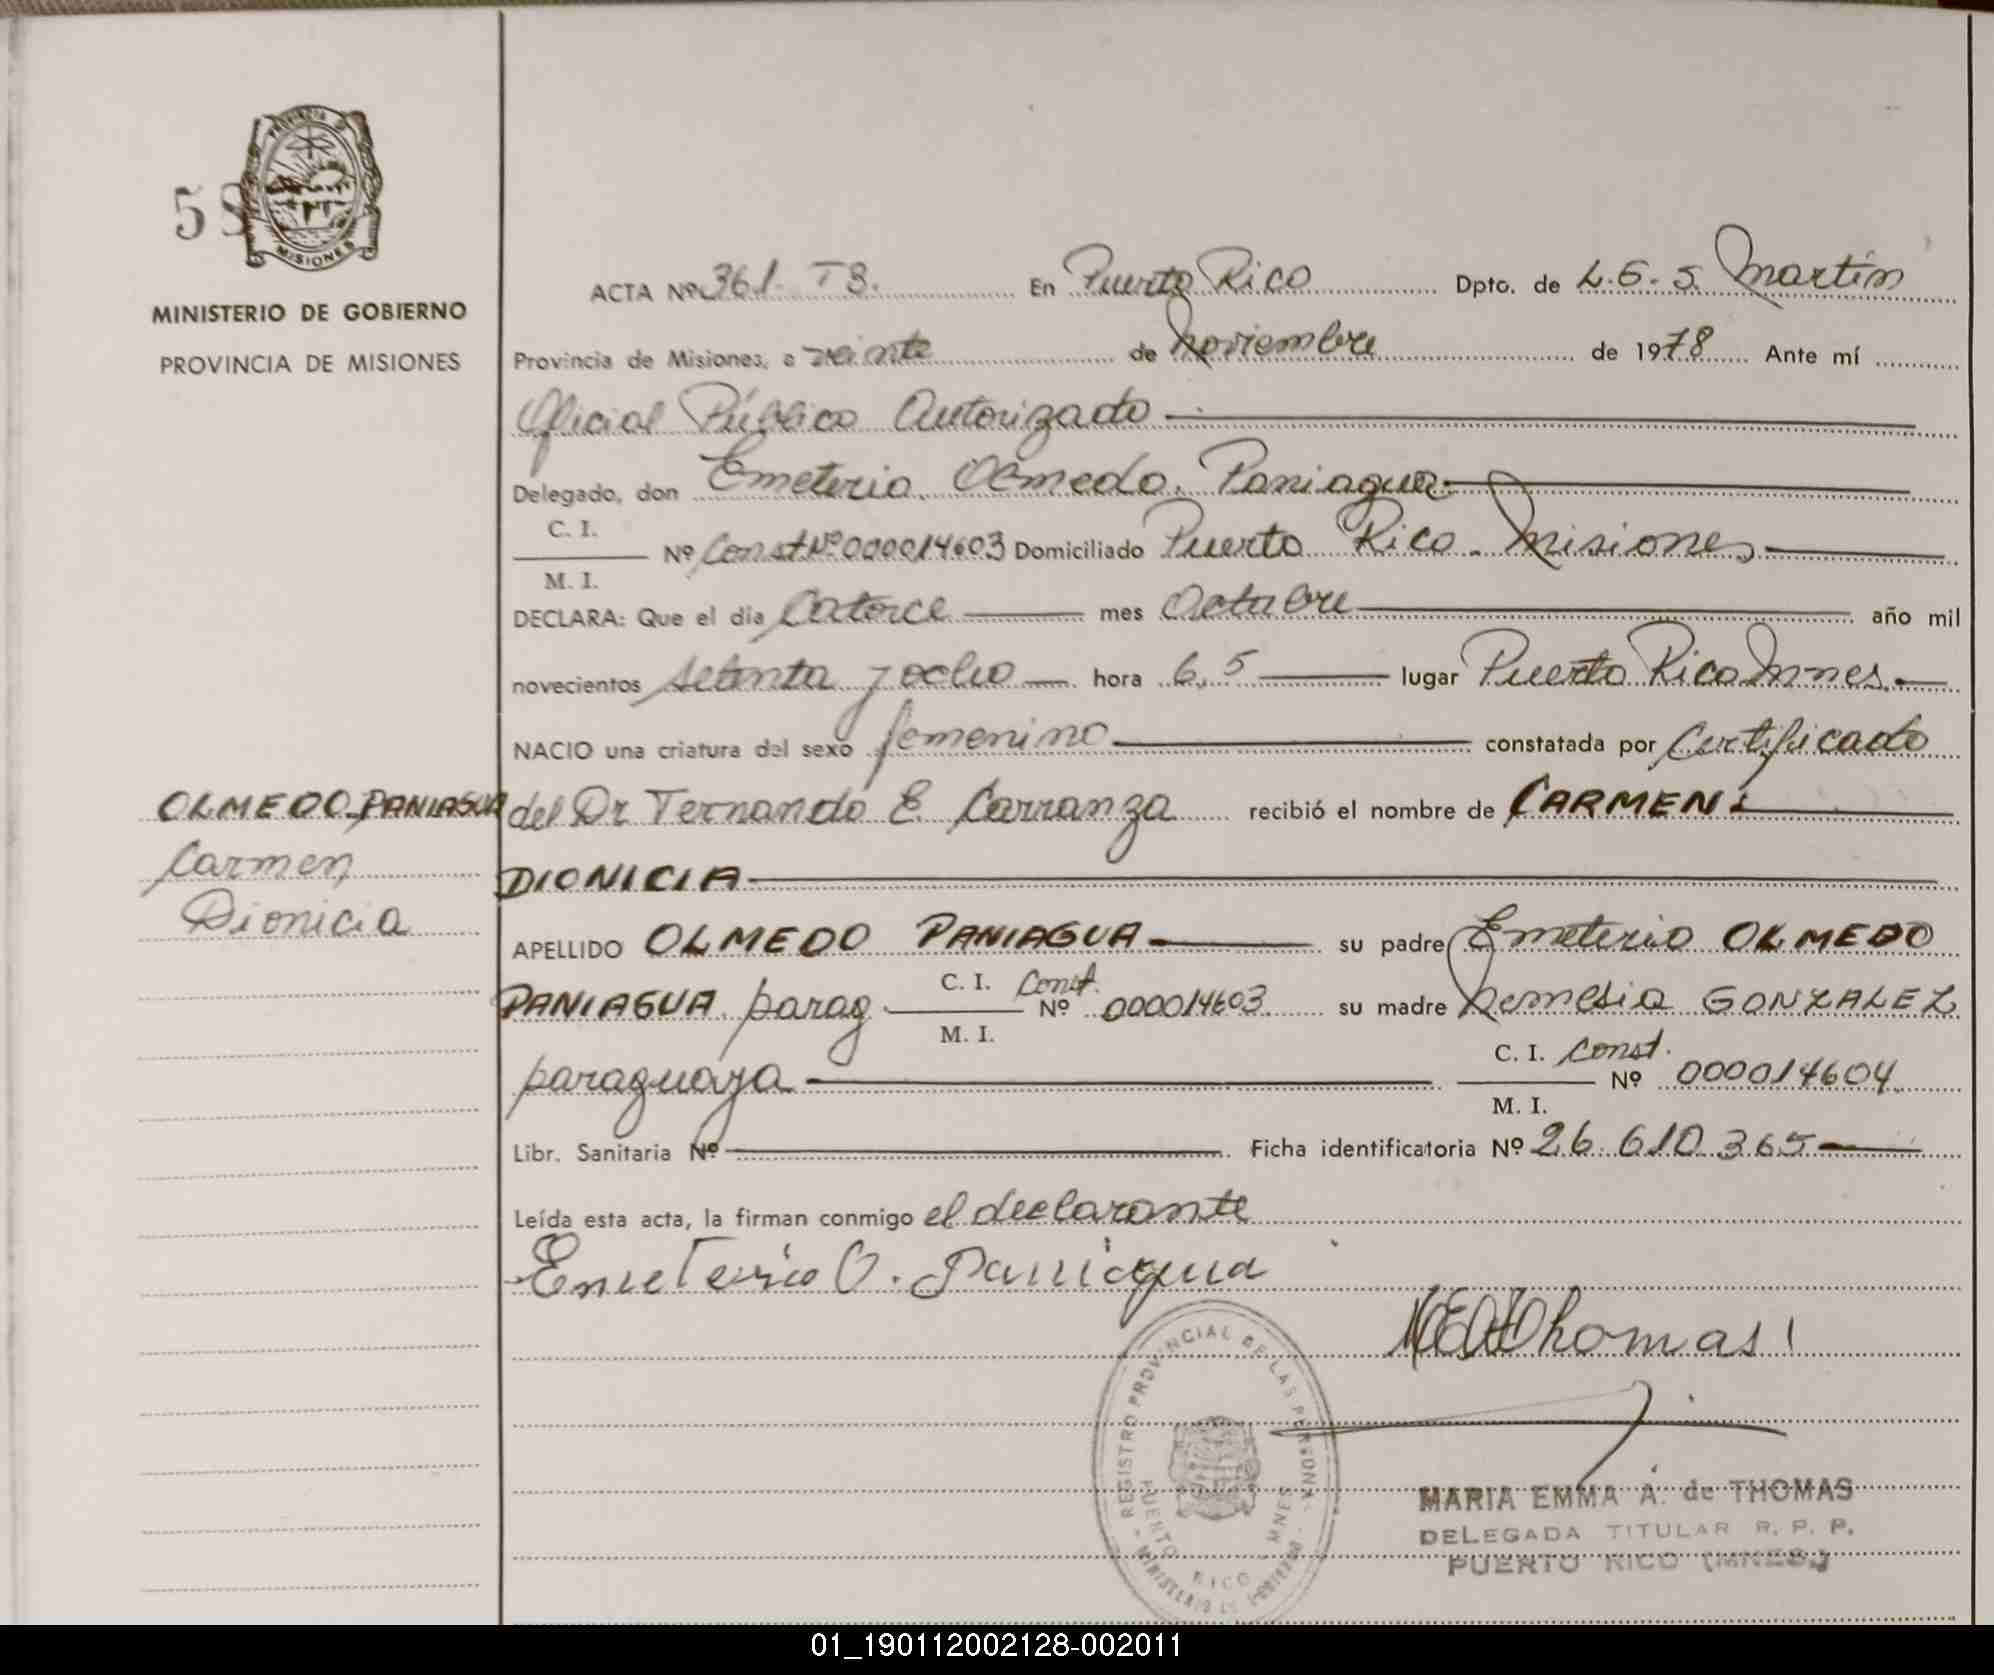 58
PROVINCIA DE
MISIONES
MINISTERIO DE GOBIERNO
PROVINCIA DE MISIONES
ACTA Nº 361. T3. En Puerto Rico Dpto. de L.G.S. Martín
Provincia de Misiones, a veinte de Noviembre de 1978 Ante mí
Oficial Público Autorizado
Delegado, don Emeterio Olmedo Paniagua
C. I.
Nº Const Nº 000014603 Domiciliado Puerto Rico - Misiones
M. I.
DECLARA: Que el dia Catorce mes Octubre año mil
novecientos setenta y ocho hora 6,5 lugar Puerto Rico Mnes.
NACIO una criatura del sexo femenino constatada por Certificado
del Dr Fernando E. Carranza recibió el nombre de CARMEN
DIONICIA
OLMEDO PANIAGUA
Carmen
Dionicia
APELLIDO OLMEDO PANIAGUA su padre Emeterio OLMEDO
PANIAGUA parag C. I. M. I. Const. Nº 000014603 su madre Nemesia GONZALEZ
paraguaya C. I. M. I. Const. Nº 000014604
Libr. Sanitaria Nº Ficha identificatoria Nº 26.610.365
Leída esta acta, la firman conmigo el declarante
Emeterio O. Paniagua
Thomas
REGISTRO PROVINCIAL DE LAS PERSONAS
MINISTERIO DE GOBIERNO
PUERTO RICO MNES
MARIA EMMA A. de THOMAS
DELEGADA TITULAR R. P. P.
PUERTO RICO (MNES.)
01_190112002128-002011